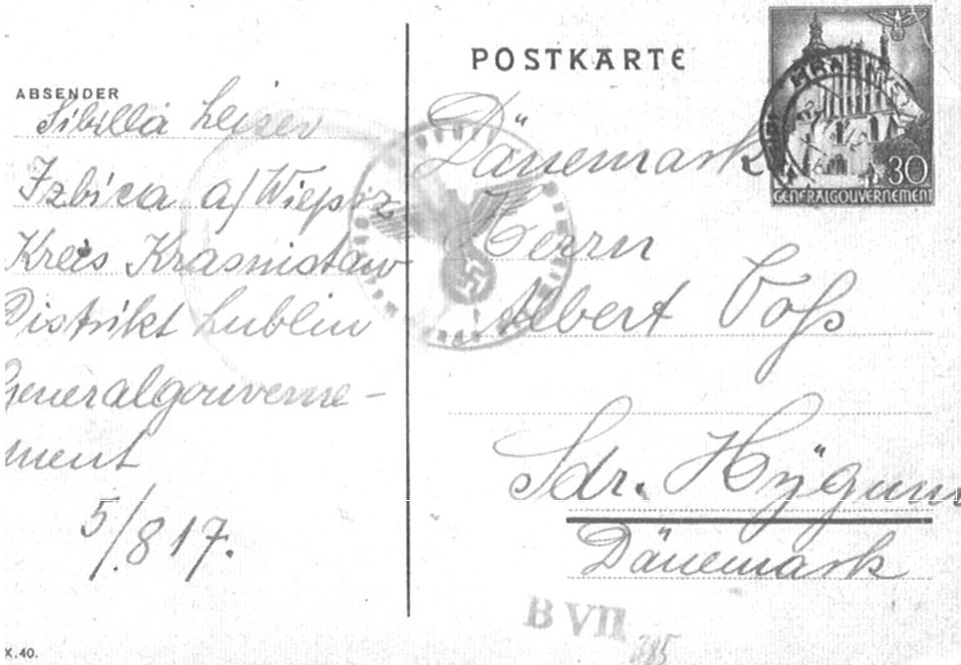 POSTKARTE
ABSENDER
Sibilla Leiser
Izbica a/Wieprz
Kreis Krasnistaw
Distrikt Lublin
Generalgouverne-
ment
5/817.
X.40.
30
GENERALGOUVERNEMENT
Dänemark
Herrn
Albert Voß
Sdr. Hÿgum
Dänemark
B VII
285